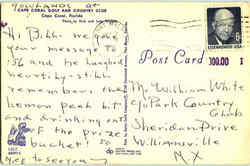 Rowlands at
CAPE CORAL GOLF AND COUNTRY CLUB
Cape Coral, Florida
Hi Bill: we gave
your message to
'56 and he laughed
heartily. still
remembers the
lemon peak bit
and drinking out
of the prize
bucket! so
nice to see you
Post Card
EISENHOWER·USA
Mr. William White
c/o Park Country
Club
Sheridan Drive
Williamsville